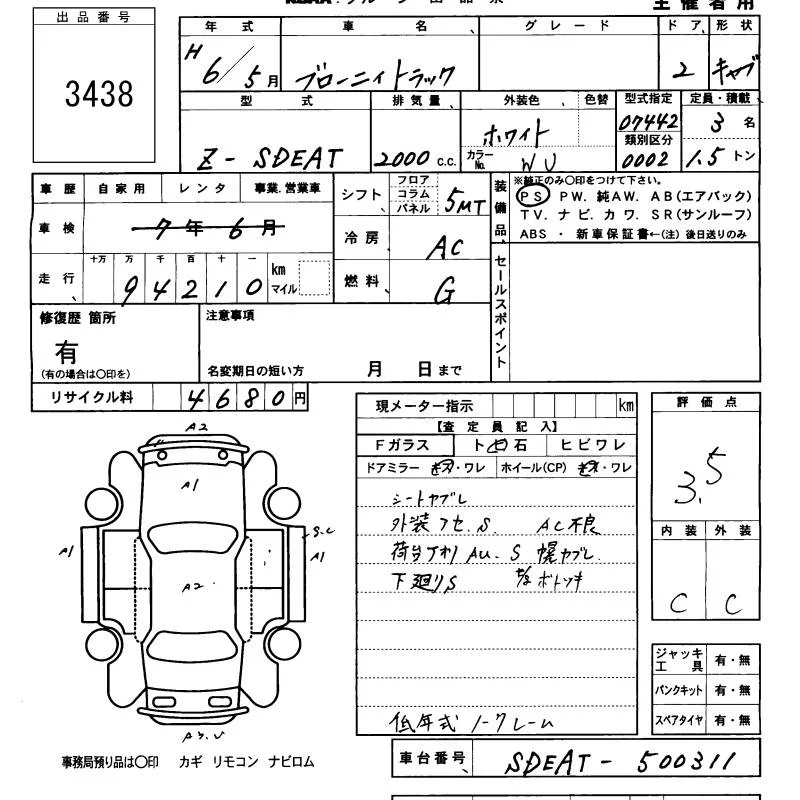 主催者用
出品番号
3438
年式 車名 グレード ドア 形状
H 6/5月 ブローニィトラック 2 キャブ
型式 排気量 外装色 色替 型式指定 定員・積載
07442 3名
類別区分
Z-SDEAT 2000 c.c. ホワイト カラーNo. WU 0002 1.5トン
車歴 自家用 レンタ 事業.営業車
車検 7年6月
走行 十万 万 千 百 十 一 km マイル
94210
シフト フロア コラム パネル 5MT
冷房 AC
燃料 G
装備品
※純正のみ○印をつけて下さい。
PS PW. 純AW. AB(エアバック)
TV. ナビ. カワ. SR(サンルーフ)
ABS ・ 新車保証書←(注) 後日送りのみ
セールスポイント
修復歴 箇所
有
(有の場合は○印を)
注意事項
名変期日の短い方 月 日まで
リサイクル料 4680円
現メーター指示 km
【査定員記入】
Fガラス ト 石 ヒビワレ
ドアミラー ・ワレ ホイール(CP) ・ワレ
シートヤブレ
外装アセ.S. AC不良
荷台 AU.S 幌ヤブレ
下廻りS
低年式 ノークレーム
評価点
3.5
内装 外装
C C
ジャッキ工具 有・無
パンクキット 有・無
スペアタイヤ 有・無
A2
A1
S.C
A1 A1
A2
事務局預り品は○印 カギ リモコン ナビロム
車台番号 SDEAT-500311